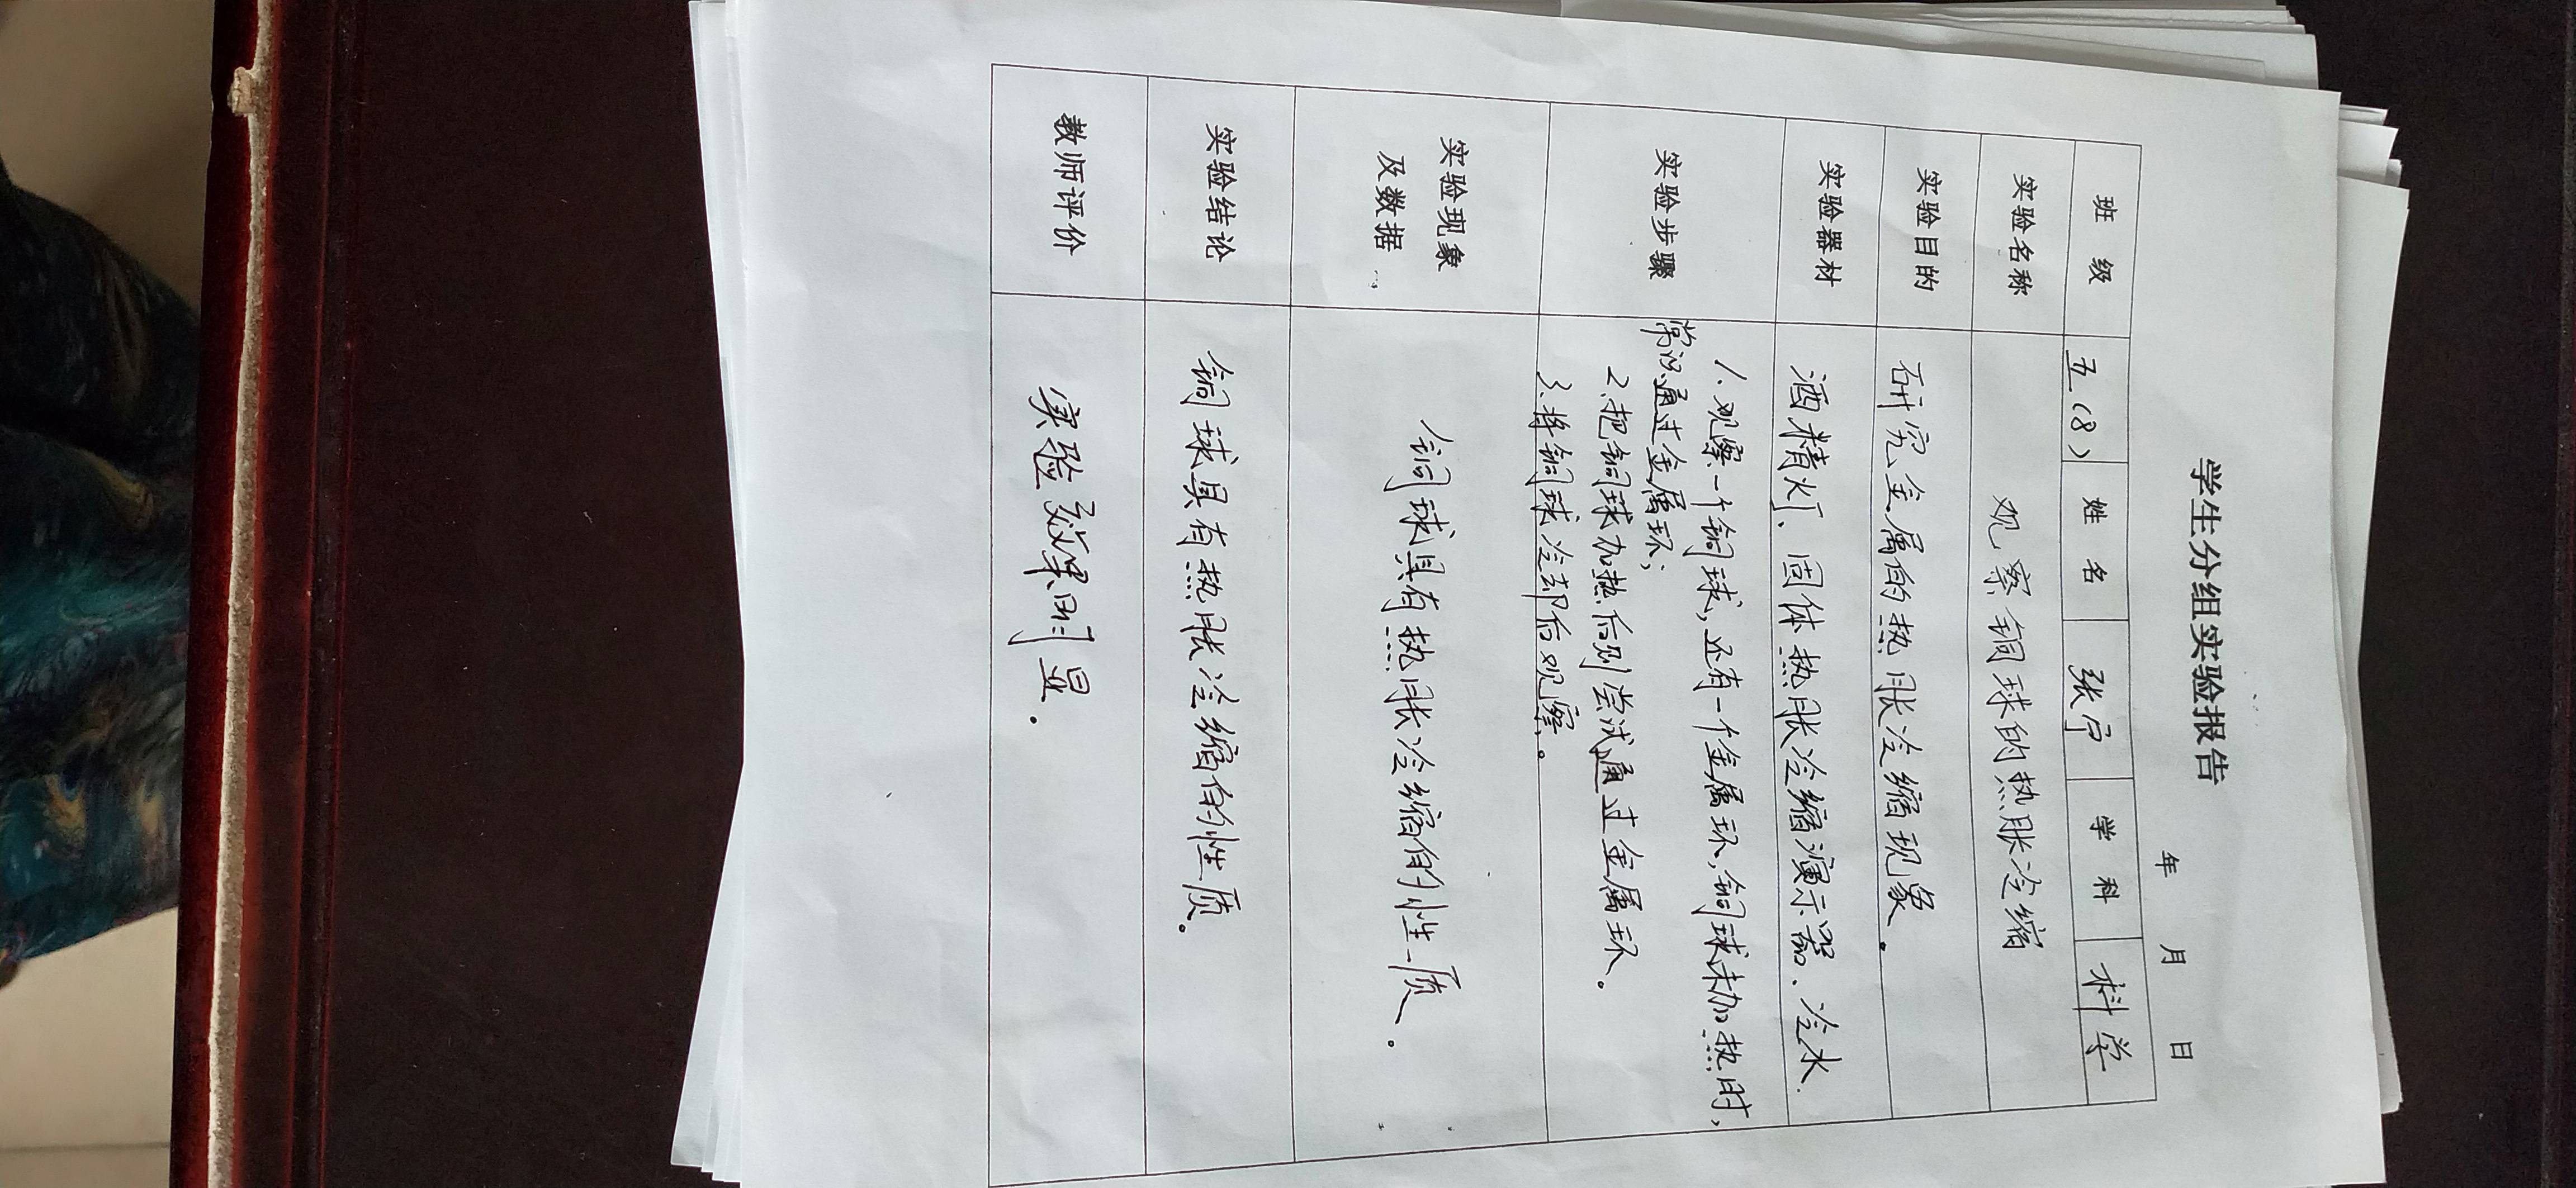 学生分组实验报告
年 月 日
班 级 五（8） 姓 名 张宁 学 科 科学
实验名称 观察铜球的热胀冷缩
实验目的 研究金属的热胀冷缩现象。
实验器材 酒精灯、固体热胀冷缩演示器、冷水.
实验步骤
1、观察一个铜球，还有一个金属环，铜球未加热时，
常识通过金属环；
2、把铜球加热后则尝试通过金属环。
3、将铜球冷却后观察。
实验现象
及数据
铜球具有热胀冷缩的性质。
实验结论 铜球具有热胀冷缩的性质。
教师评价 实验效果明显.